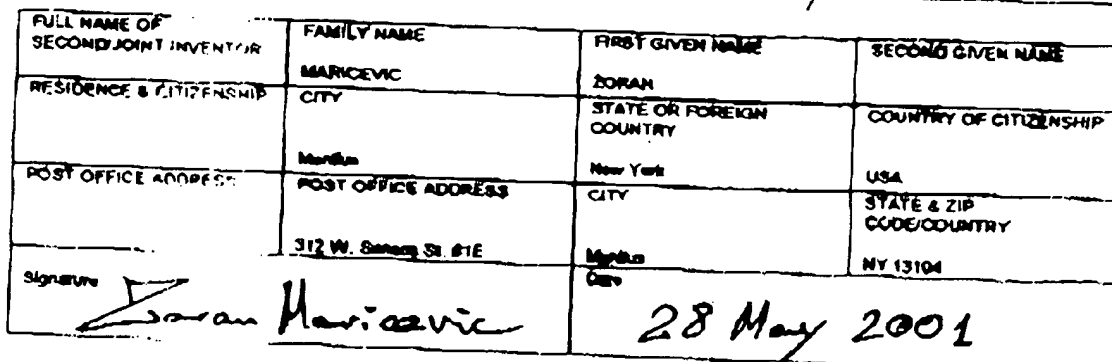 FULL NAME OF SECOND/JOINT INVENTOR
FAMILY NAME
MARICEVIC
FIRST GIVEN NAME
ZORAN
SECOND GIVEN NAME
RESIDENCE & CITIZENSHIP
CITY
Manlius
STATE OR FOREIGN COUNTRY
New York
COUNTRY OF CITIZENSHIP
USA
POST OFFICE ADDRESS
POST OFFICE ADDRESS
312 W. Seneca St. #1E
CITY
Manlius
STATE & ZIP CODE/COUNTRY
NY 13104
Signature
Zoran Maricevic
Date
28 May 2001